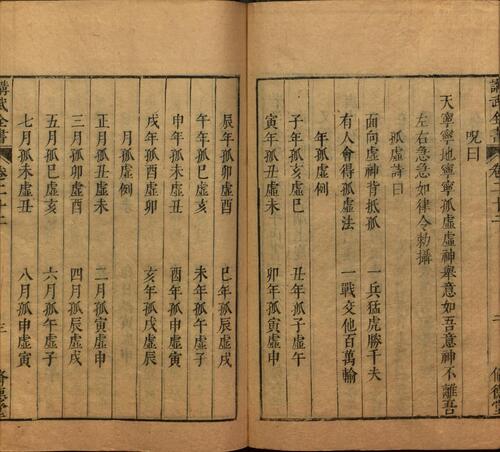 呪曰
天寧寧地寧寧孤虛虛神舉意如吾意神不離吾
左右急急如律令勅攝
孤虛詩曰
面向虛神背抵孤 一兵猛虎勝千夫
有人會得孤虛法 一戰交他百萬輸
年孤虛例
子年孤亥虛巳 丑年孤子虛午
寅年孤丑虛未 卯年孤寅虛申
辰年孤卯虛酉 巳年孤辰虛戌
午年孤巳虛亥 未年孤午虛子
申年孤未虛丑 酉年孤申虛寅
戌年孤酉虛卯 亥年孤戌虛辰
月孤虛例
正月孤丑虛未 二月孤寅虛申
三月孤卯虛酉 四月孤辰虛戌
五月孤巳虛亥 六月孤午虛子
七月孤未虛丑 八月孤申虛寅
講武全書 卷二十二 三